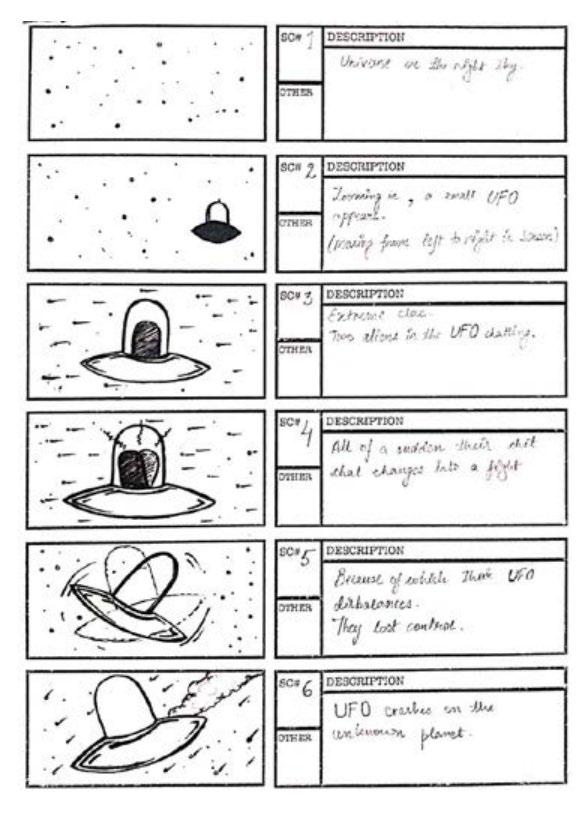 SC# 1
DESCRIPTION
Universe or the night sky.
OTHER
SC# 2
DESCRIPTION
Zooming in, a small UFO
appears.
(moving from left to right in screen)
OTHER
SC# 3
DESCRIPTION
Extreme close.
Two aliens in the UFO chatting.
OTHER
SC# 4
DESCRIPTION
All of a sudden their chit
chat changes into a fight
OTHER
SC# 5
DESCRIPTION
Because of which their UFO
disbalances.
They lost control.
OTHER
SC# 6
DESCRIPTION
UFO crashes on the
unknown planet.
OTHER